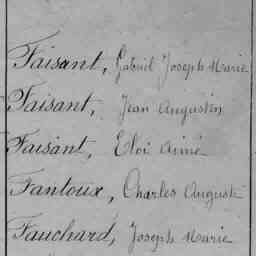 Faisant, Gabriel Joseph Marie
Faisant, Jean Augustin
Faisant, Eloi Aimé
Fantoux, Charles Auguste
Fauchard, Joseph Marie